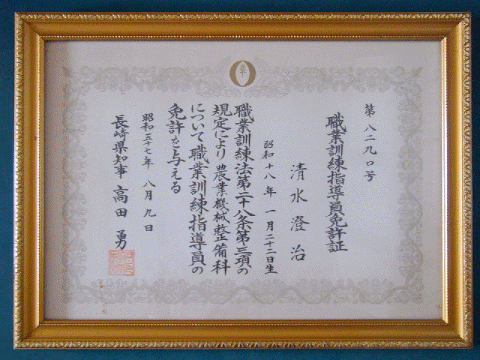 第八二九〇号
職業訓練指導員免許証
清水澄治
昭和十八年一月二十二日生
職業訓練法第二十八条第三項の
規定により農業機械整備科
について職業訓練指導員の
免許を与える
昭和五十七年八月九日
長崎県知事 高田勇